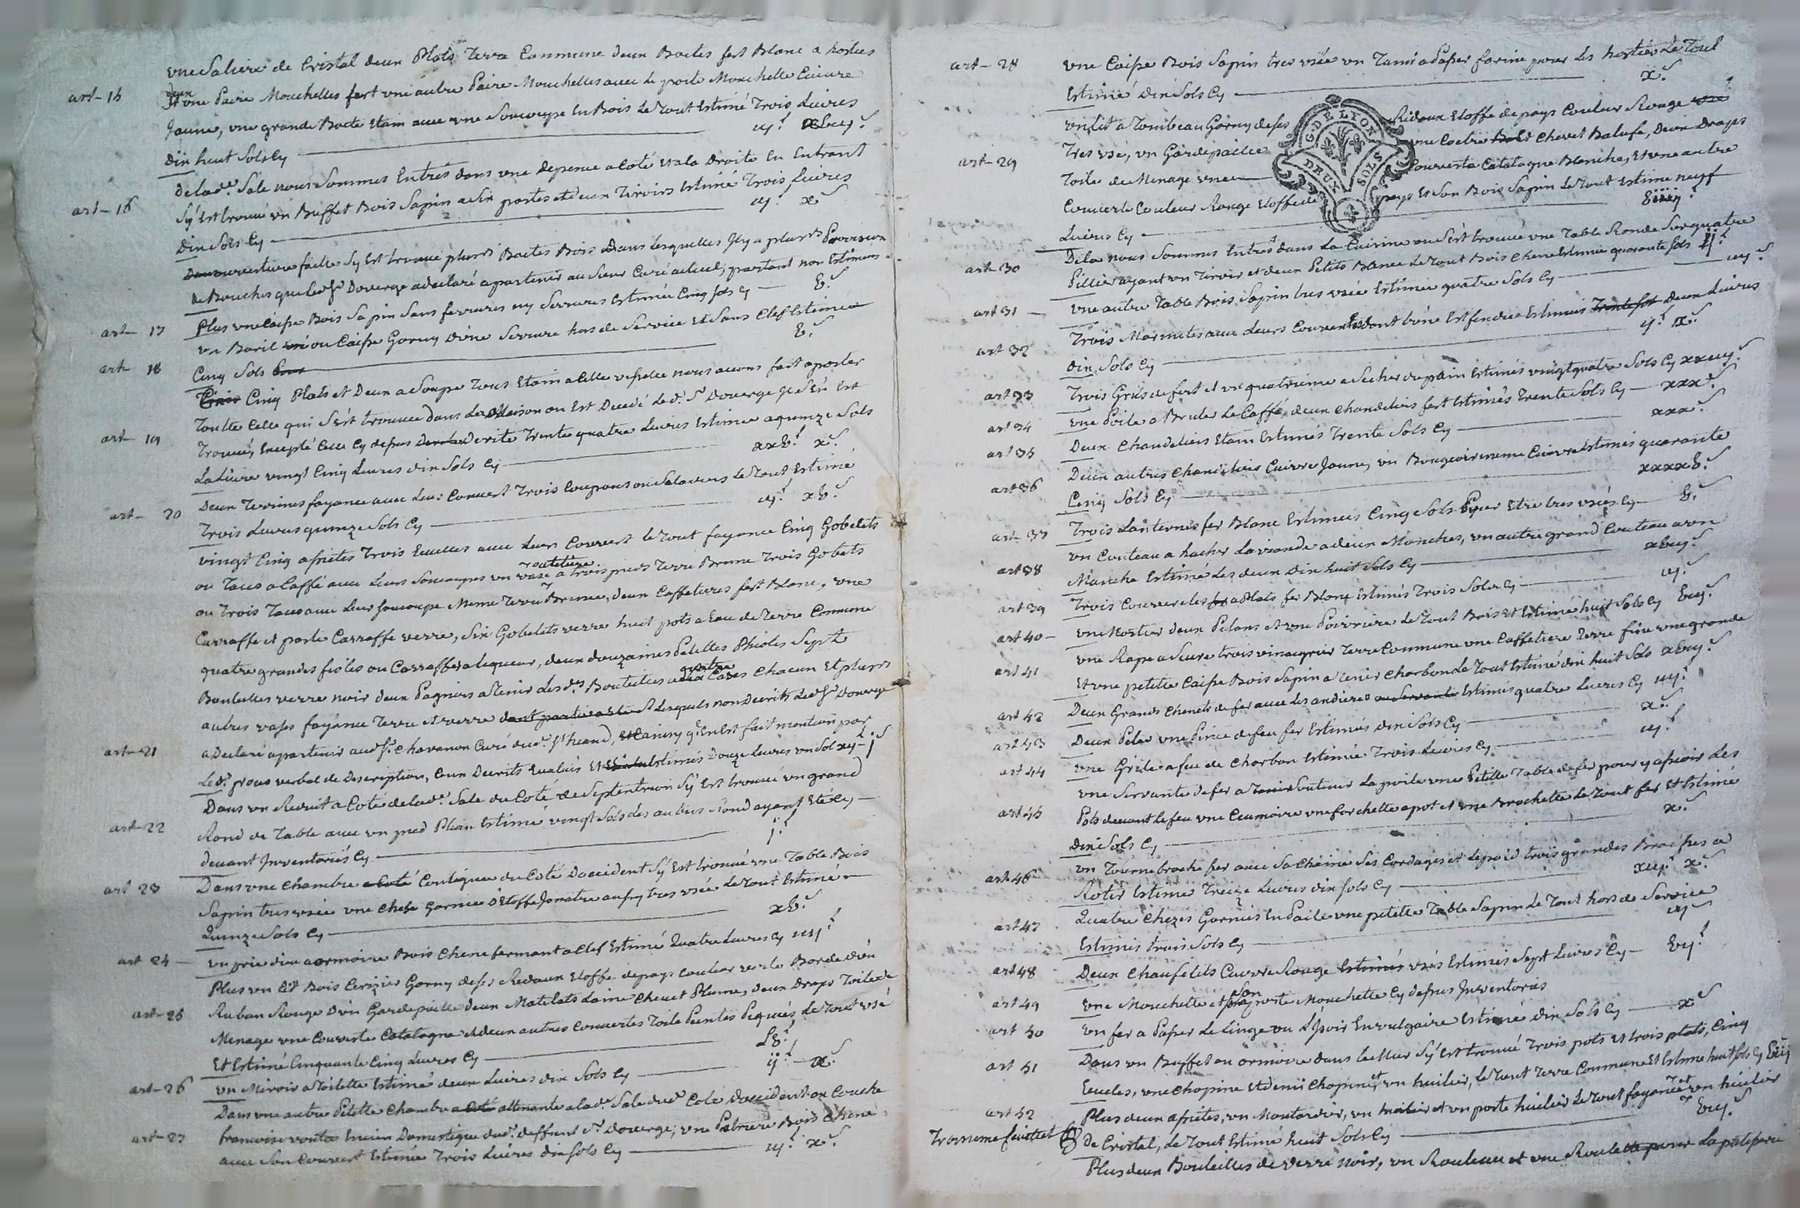 une Saliere de Cristal deux Plats Terre Commune deux Boetes fert Blanc a hosties
art-15 deux
et une Paire Mouchettes fert une autre Paire Mouchettes avec le porte Mouchette Cuivre
Jaune, une grande Boete Etain avec une Soucoupe En Bois le Tout Estimé Trois Livres
Dix huit Sols Cy
De lad.e Sale nous Sommes Entrés dans une depence a Coté et a la Droite En Entrant
art-16 Sy Est trouvé un Buffet Bois Sapin a Six portes et deux Tiroirs Estimé Trois Livres
Dix Sols Cy iij.l x.s
ouverture faite Sy Est trouvé plurs Boetes Bois Dans lesquelles Il y a plurs Provisions
de Bouches que led. Sr Doverge a declaré apartenir au Sieur Curé actuel, partant non Estimées
art- 17 Plus une Caisse Bois Sapin Sans ferrures ny Serrures Estimée Cinq Sols Cy
art- 18 un Baril ou Caisse Garny D'une Serrure hors de Service Et Sans Clef Estimée
Cinq Sols
Cinq Plats et Deux a Soupe Tous Etain a Celle vesselle nous avons fait aporter
Toutte Celle qui S'est trouvée Dans la Maison ou Est Decedé le d. Sr Doverge
art- 19 Trouvés, Excepté Celle Cy depus Decrite Trente quatre Livres Estimée a quinze Sols
La Livre vingt Cinq Livres dix Sols Cy xxv.l x.s
art- 20 Deux Terrines fayance avec Leur Couvert Trois Coupons ou Saladiers le Tout Estimé
Trois Livres quinze Sols Cy iij.l xv.s
vingt Cinq assietes Trois Ecuelles avec Leur Couvert le Tout fayance Cinq Gobelets
ou Tasses a Caffé avec Leurs Soucoupes un vase a trois pieds Terre Brune Trois Gobets
ou Trois Tasses avec Leur Soucoupe Meme Terre Brune, deux Caffetieres fert Blanc, une
Carraffe et porte Carraffe verre, Six Gobelets verre huit pots a Eau de Terre Commune
quatre grandes fioles ou Carraffes a liqueur, deux douzaines Petites Phioles Sept
Bouteilles verre noir deux Pagniers a Tenir Les d.es Bouteilles a quatre Cases Chacun Et plurs
autres vases fayence Terre et verre Lesquels non Decrits Led. Sr Doverge
art-21 a Declaré apartenir aud. Sr. Chavanon Curé dud. St heand, qu'En Est fait mention par
le d. proces verbal de Description, Ceux Decrits Evalués Et Estimés Douze Livres un Sol xij.l j.s
Dans un Reduit a Coté de lad.e Sale du Coté de Septentrion Sy Est trouvé un grand
art-22 Rond de Table avec un pied Pliant Estimé vingt Sols
devant Inventoriés Cy j.l
art 23 Dans une Chambre Contigue du Coté Doccident Sy Est trouvé une Table Bois
Sapin tres usée une Garnie d'Etoffe aussy tres usée le Tout Estimé
Quinze Sols Cy xv.s
art 24 - un prie dieu a ormoire Bois Chene fermant a Clef Estimé Quatre Livres Cy iiij.l
Plus un Lit Bois Cerizier Garny de Ses Rideaux Etoffe de pays Couleur verte Bordé d'un
art-25 Ruban Rouge D'un Gardepaille deux Matelats Laine Chevet Plume, deux Draps Toile de
Menage une Couverte Catalogne et deux autres Couvertes Toile Peintes Piquées le Tout usé
Et Estimé Cinquante Cinq Livres Cy Lv.l
art-26 un Miroir a Toilette Estimé deux Livres dix Sols Cy ij.l x.s
Dans une autre Petitte Chambre attenante a la d.e Sale du d. Coté Doccident ou Couche
art-27 francoise ancienne Domestique du d. deffunt Sr Doverge, une Bois Chene
avec Son Couvert Estimé Trois Livres dix Sols Cy iij.l x.s
art- 28 une Caisse Bois Sapin tres usée un Tamis a Passer farine pour les hosties Le Tout
Estimé Dix Sols Cy x.s
G. DE LYON
DEUX SOLS
un Lit a Tombeau Garny de Ses Rideaux Etoffe de pays Couleur Rouge
art-29 Tres usé, un Gardepaille une Coetre Chevet Balufe, Deux Draps
Toile de Menage une Couverte Catalogne Blanche, Et une autre
Couverte Couleur Rouge Etoffe de pays Et Son Bois Sapin le Tout Estimé neuf
Livres Cy
art 30 De la nous Sommes Entrés dans La Cuisine ou S'est trouvé une Table Ronde Sur quatre
Pilliers ayant un Tiroir et deux Petits Bancs le Tout Bois Chene Estimé quarante Sols
art 31 - une autre Table Bois Sapin tres usée Estimée quatre Sols Cy iiij.s
art 32 Trois Marmites avec Leurs Couvercles dont l'une Est fendue Estimées deux Livres
dix Sols Cy ij.l x.s
art 33 Trois Grils de fert et un quatrieme a Secher du pain Estimés vingt quatre Sols Cy xxiiij.s
art 34 une Poile a Bruler le Caffé deux Chandeliers fert Estimés Trente Sols Cy xxx.s
art 35 Deux Chandeliers Etain Estimés Trente Sols Cy xxx.s
art 36 Deux autres Chandeliers Cuivre Jaune, un Bougeoir meme Cuivre Estimés quarante
Cinq Sols Cy xxxxv.s
art- 37 Trois Lanternes fer Blanc Estimées Cinq Sols pour Etre tres usées Cy v.s
art 38 un Couteau a hacher La viande a deux Manches, un autre grand Couteau avec
Manche Estimé Les deux dix huit Sols Cy xviij.s
art 39 Trois Couvercles a Plats fer Blanc Estimés Trois Sols Cy iij.s
art 40 - un Mortier deux Pilons et une Poivriere le Tout Bois Et Estimé huit Sols Cy viij.s
art 41 une Rape a Sucre trois vinaigrier Terre Commune une Caffetiere Terre fine une grande
Et une petite Caisse Bois Sapin a Tenir Charbon Le Tout Estimé dix huit Sols xviij.s
art 42 Deux Grands Chenets de fer avec Les andiers Estimés quatre Livres Cy iiij.l
art 43 Deux Pelles une Pince de feu fer Estimés dix Sols Cy x.s
art 44 une Grille a feu de Charbon Estimée Trois Livres Cy iij.l
art 45 une Servante de fer a Soutenir la poile une Petitte Table de fer pour y assoir les
Pots devant le feu une Ecumoire une forchette a pot et une Brochette le Tout fer Et Estimé
Dix Sols Cy x.s
art 46 un Tournebroche fer avec Sa Chaine Ses Cordages et le poid trois grandes Broches a
Rotir Estimé Treize Livres dix Sols Cy xiij.l x.s
art 47 Quatre Chezes Garnies En Paile une petite Table Sapin Le Tout hors de Service
Estimés trois Sols Cy iij.s
art 48 Deux Chaufe lits Cuivre Rouge usés Estimés Sept Livres Cy vij.l
art 49 une Mouchette et Son porte Mouchette Cy depus Inventories
art 50 un fer a Passer Le Linge En vulgaire Estimé dix Sols Cy x.s
art 51 Dans un Buffet ou ormoire dans le Mur Sy Est trouvé Trois pots et trois plats, Cinq
Ecueles, une Chopine Et demi Chopine, et un huilier, le Tout Terre Commune Et Estimé huit Sols Cy viij
art 52 Plus deux assietes, un Moutardier, un et un porte huilier le Tout fayance et un huilier
Troisieme feuillet De Cristal, le Tout Estimé huit Sols Cy viij.s
Plus deux Bouteilles de verre noir, un Rouleau et une Roulette pour La patisserie